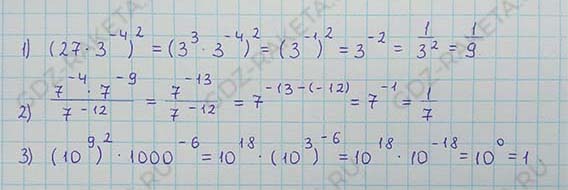 1) (27 · 3⁻⁴)² = (3³ · 3⁻⁴)² = (3⁻¹)² = 3⁻² = 1/3² = 1/9
2) (7⁻⁴ · 7⁻⁹)/7⁻¹² = 7⁻¹³/7⁻¹² = 7⁻¹³⁻⁽⁻¹²⁾ = 7⁻¹ = 1/7
3) (10⁹)² · 1000⁻⁶ = 10¹⁸ · (10³)⁻⁶ = 10¹⁸ · 10⁻¹⁸ = 10⁰ = 1
GDZ-RAKETA.RU